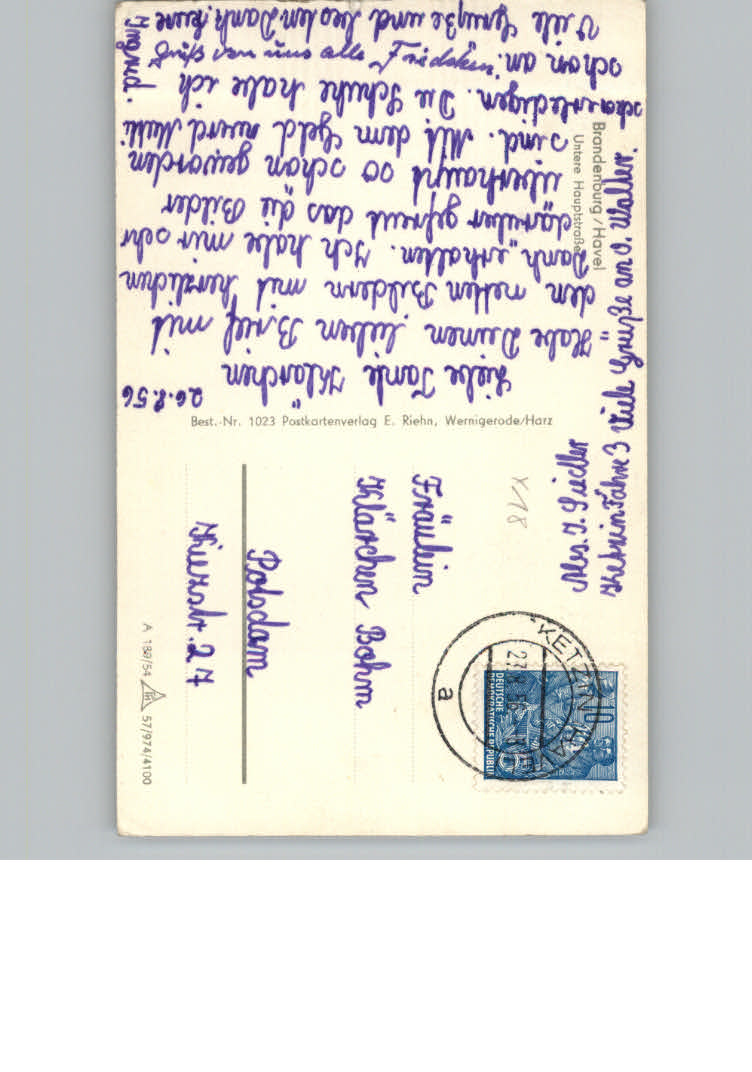 26.8.56
Liebe Tante Klärchen
Habe Deinen lieben Brief mit
den netten Bildern mit herzlichen
Dank erhalten. Ich habe mir sehr
darüber gefreut das die Bilder
überhaupt so schön geworden
sind. Mit dem Geld wird Mutti
schon erledigen. Die Schuhe habe ich
schon an.
Viele Grüße und besten Dank. Deine
Ingrid.
Gruß von uns alle
Brandenburg/Havel
Untere Hauptstraße
Viele Grüße an O. Walter.
Abs. I. Siedler
Ketzin Fähre 3
Best.-Nr. 1023 Postkartenverlag E. Riehn, Wernigerode/Harz
X18
Fräulein
Klärchen Böhm
Potsdam
Kurzstr. 27
KETZIN
a
10
DEUTSCHE
DEMOKRATISCHE REPUBLIK
A 189/54 57/974/4100